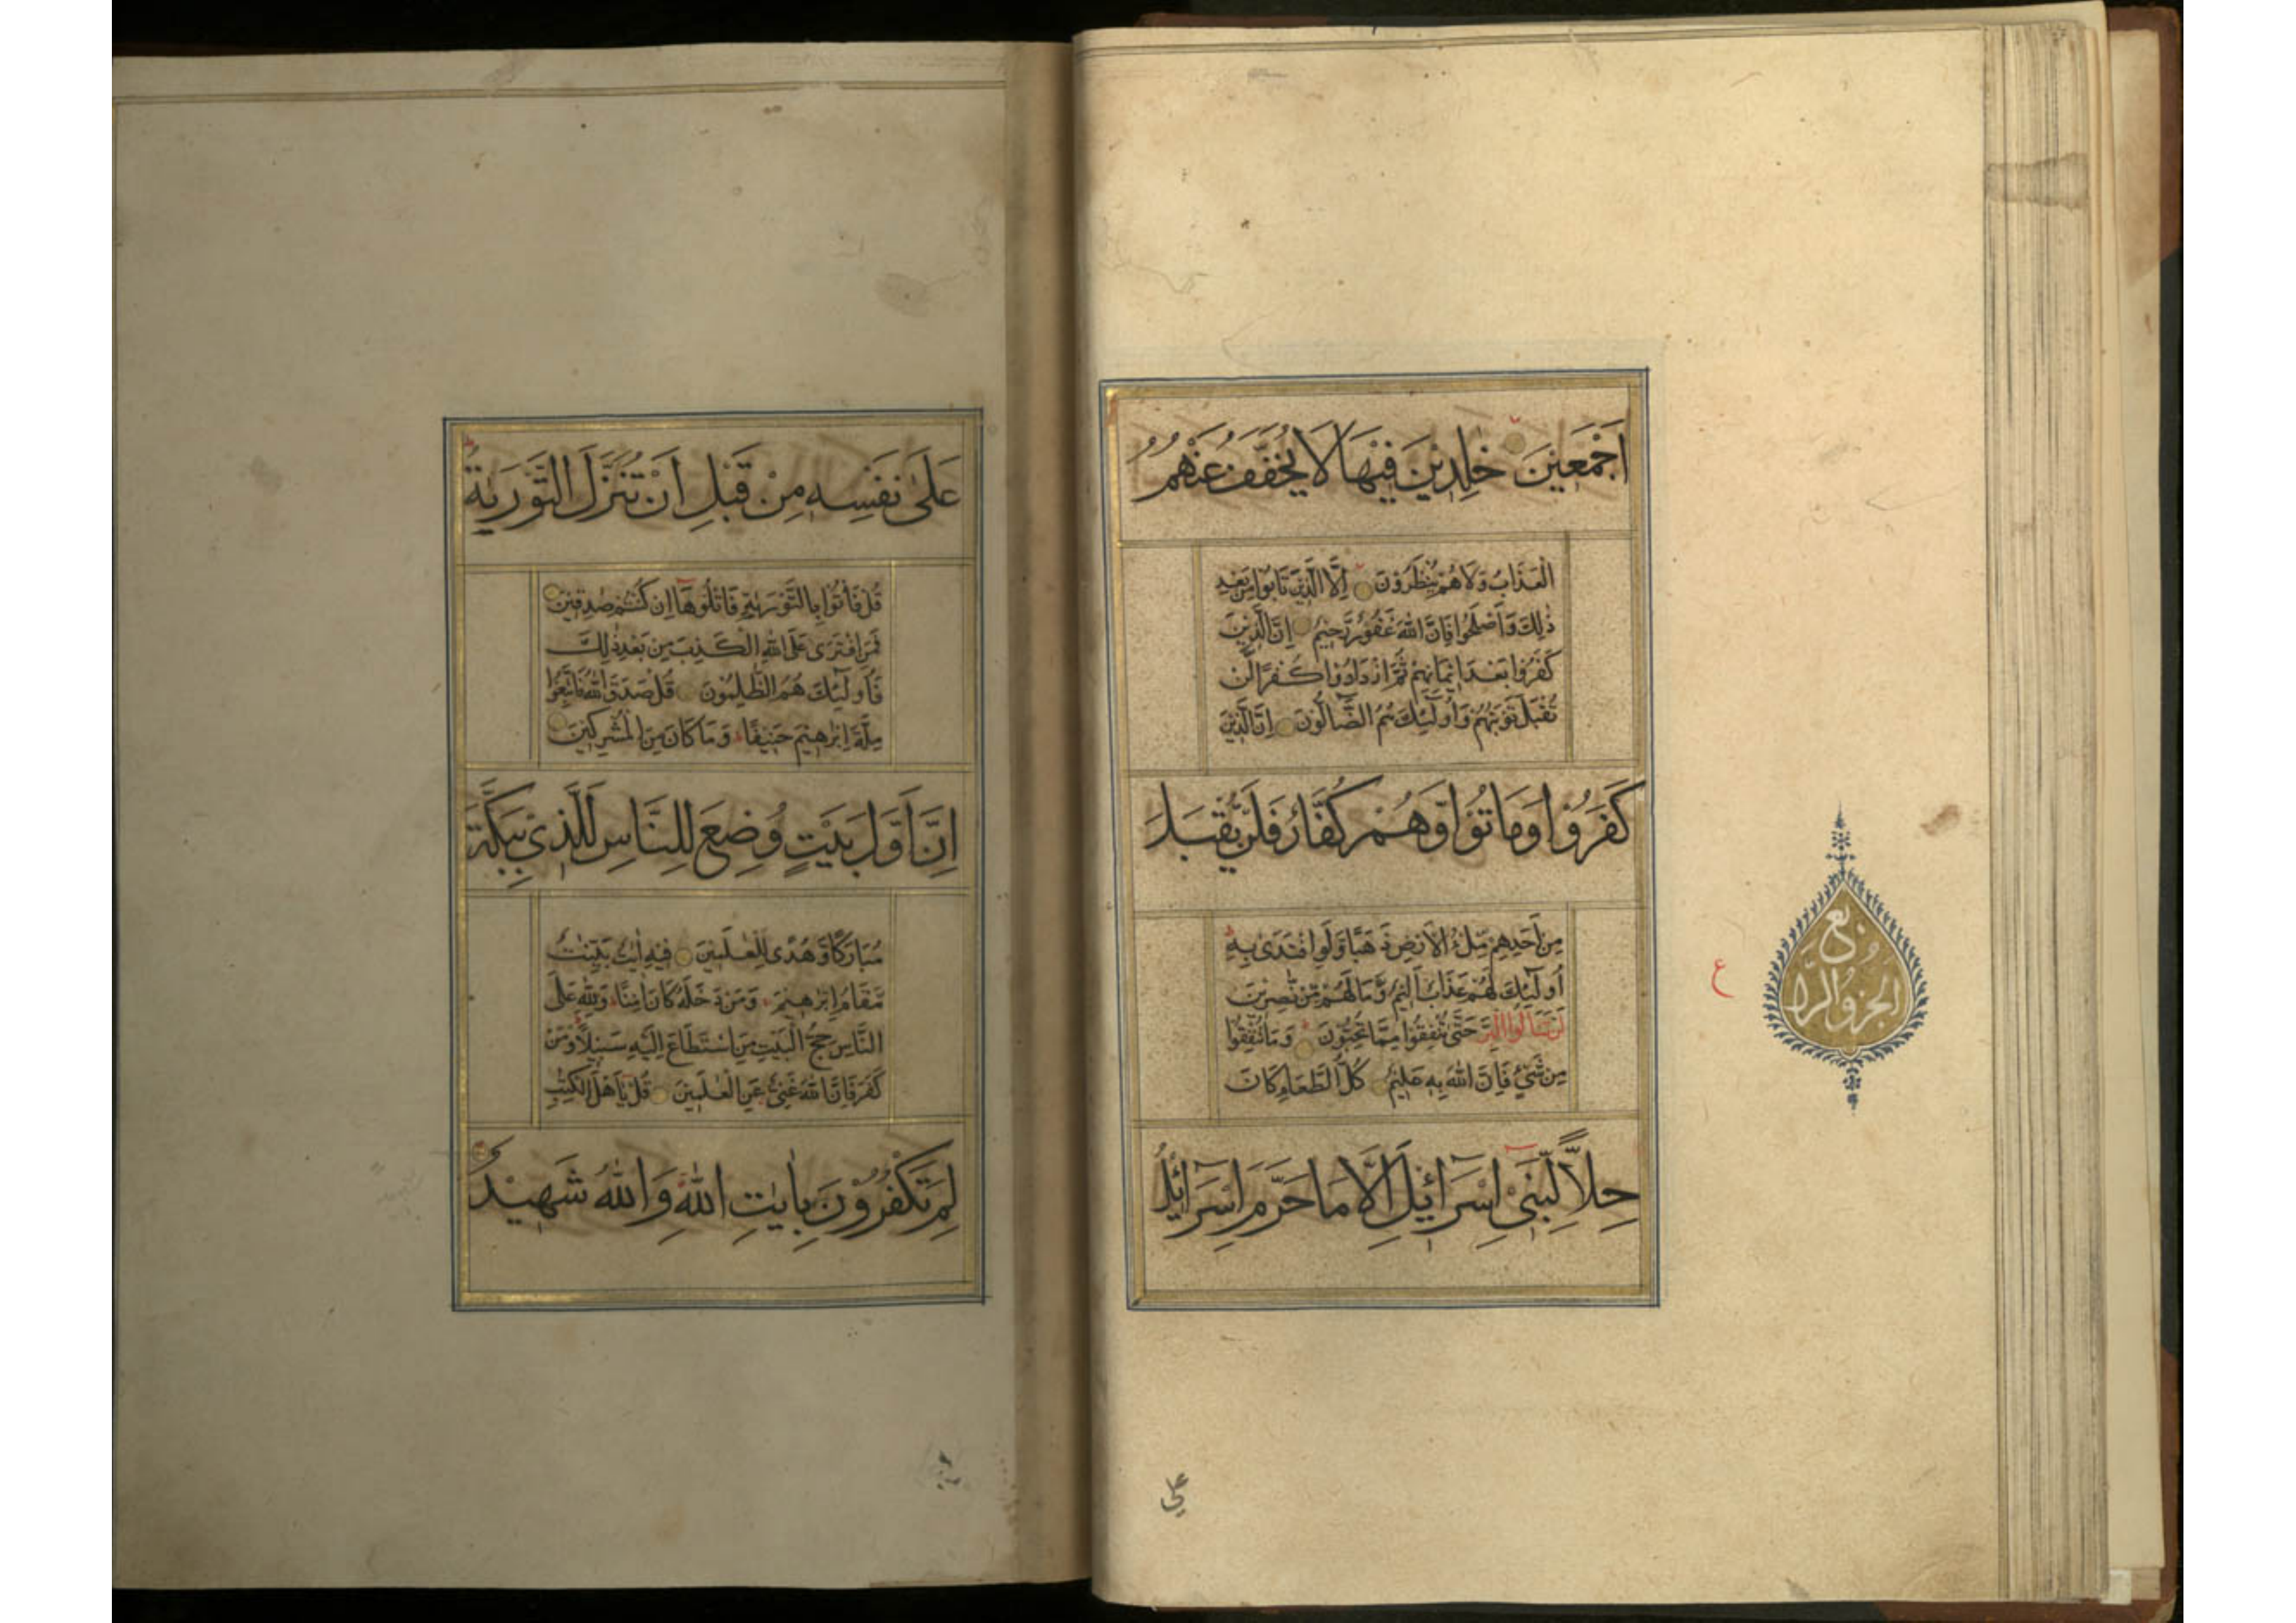 اَجْمَعِيْنَ خٰلِدِيْنَ فِيْهَا لَا يُخَفَّفُ عَنْهُمُ
الْعَذَابُ وَلَا هُمْ يُنْظَرُوْنَ اِلَّا الَّذِيْنَ تَابُوْا مِنْ بَعْدِ
ذٰلِكَ وَاَصْلَحُوْا فَاِنَّ اللّٰهَ غَفُوْرٌ رَّحِيْمٌ اِنَّ الَّذِيْنَ
كَفَرُوْا بَعْدَ اِيْمَانِهِمْ ثُمَّ ازْدَادُوْا كُفْرًا لَّنْ
تُقْبَلَ تَوْبَتُهُمْ وَاُولٰٓئِكَ هُمُ الضَّآلُّوْنَ اِنَّ الَّذِيْنَ
كَفَرُوْا وَمَاتُوْا وَهُمْ كُفَّارٌ فَلَنْ يُّقْبَلَ
مِنْ اَحَدِهِمْ مِّلْءُ الْاَرْضِ ذَهَبًا وَّلَوِ افْتَدٰى بِهٖ
اُولٰٓئِكَ لَهُمْ عَذَابٌ اَلِيْمٌ وَّمَا لَهُمْ مِّنْ نّٰصِرِيْنَ
لَنْ تَنَالُوا الْبِرَّ حَتّٰى تُنْفِقُوْا مِمَّا تُحِبُّوْنَ وَمَا تُنْفِقُوْا
مِنْ شَيْءٍ فَاِنَّ اللّٰهَ بِهٖ عَلِيْمٌ كُلُّ الطَّعَامِ كَانَ
حِلًّا لِّبَنِيْٓ اِسْرَآئِيْلَ اِلَّا مَا حَرَّمَ اِسْرَآئِيْلُ
ع
الجزو الرابع
عَلٰى نَفْسِهٖ مِنْ قَبْلِ اَنْ تُنَزَّلَ التَّوْرٰىةُ
قُلْ فَأْتُوْا بِالتَّوْرٰىةِ فَاتْلُوْهَآ اِنْ كُنْتُمْ صٰدِقِيْنَ
فَمَنِ افْتَرٰى عَلَى اللّٰهِ الْكَذِبَ مِنْ بَعْدِ ذٰلِكَ
فَاُولٰٓئِكَ هُمُ الظّٰلِمُوْنَ قُلْ صَدَقَ اللّٰهُ فَاتَّبِعُوْا
مِلَّةَ اِبْرٰهِيْمَ حَنِيْفًا وَمَا كَانَ مِنَ الْمُشْرِكِيْنَ
اِنَّ اَوَّلَ بَيْتٍ وُّضِعَ لِلنَّاسِ لَلَّذِيْ بِبَكَّةَ
مُبَارَكًا وَّهُدًى لِّلْعٰلَمِيْنَ فِيْهِ اٰيٰتٌ بَيِّنٰتٌ
مَّقَامُ اِبْرٰهِيْمَ وَمَنْ دَخَلَهٗ كَانَ اٰمِنًا وَلِلّٰهِ عَلَى
النَّاسِ حِجُّ الْبَيْتِ مَنِ اسْتَطَاعَ اِلَيْهِ سَبِيْلًا وَمَنْ
كَفَرَ فَاِنَّ اللّٰهَ غَنِيٌّ عَنِ الْعٰلَمِيْنَ قُلْ يٰٓاَهْلَ الْكِتٰبِ
لِمَ تَكْفُرُوْنَ بِاٰيٰتِ اللّٰهِ وَاللّٰهُ شَهِيْدٌ